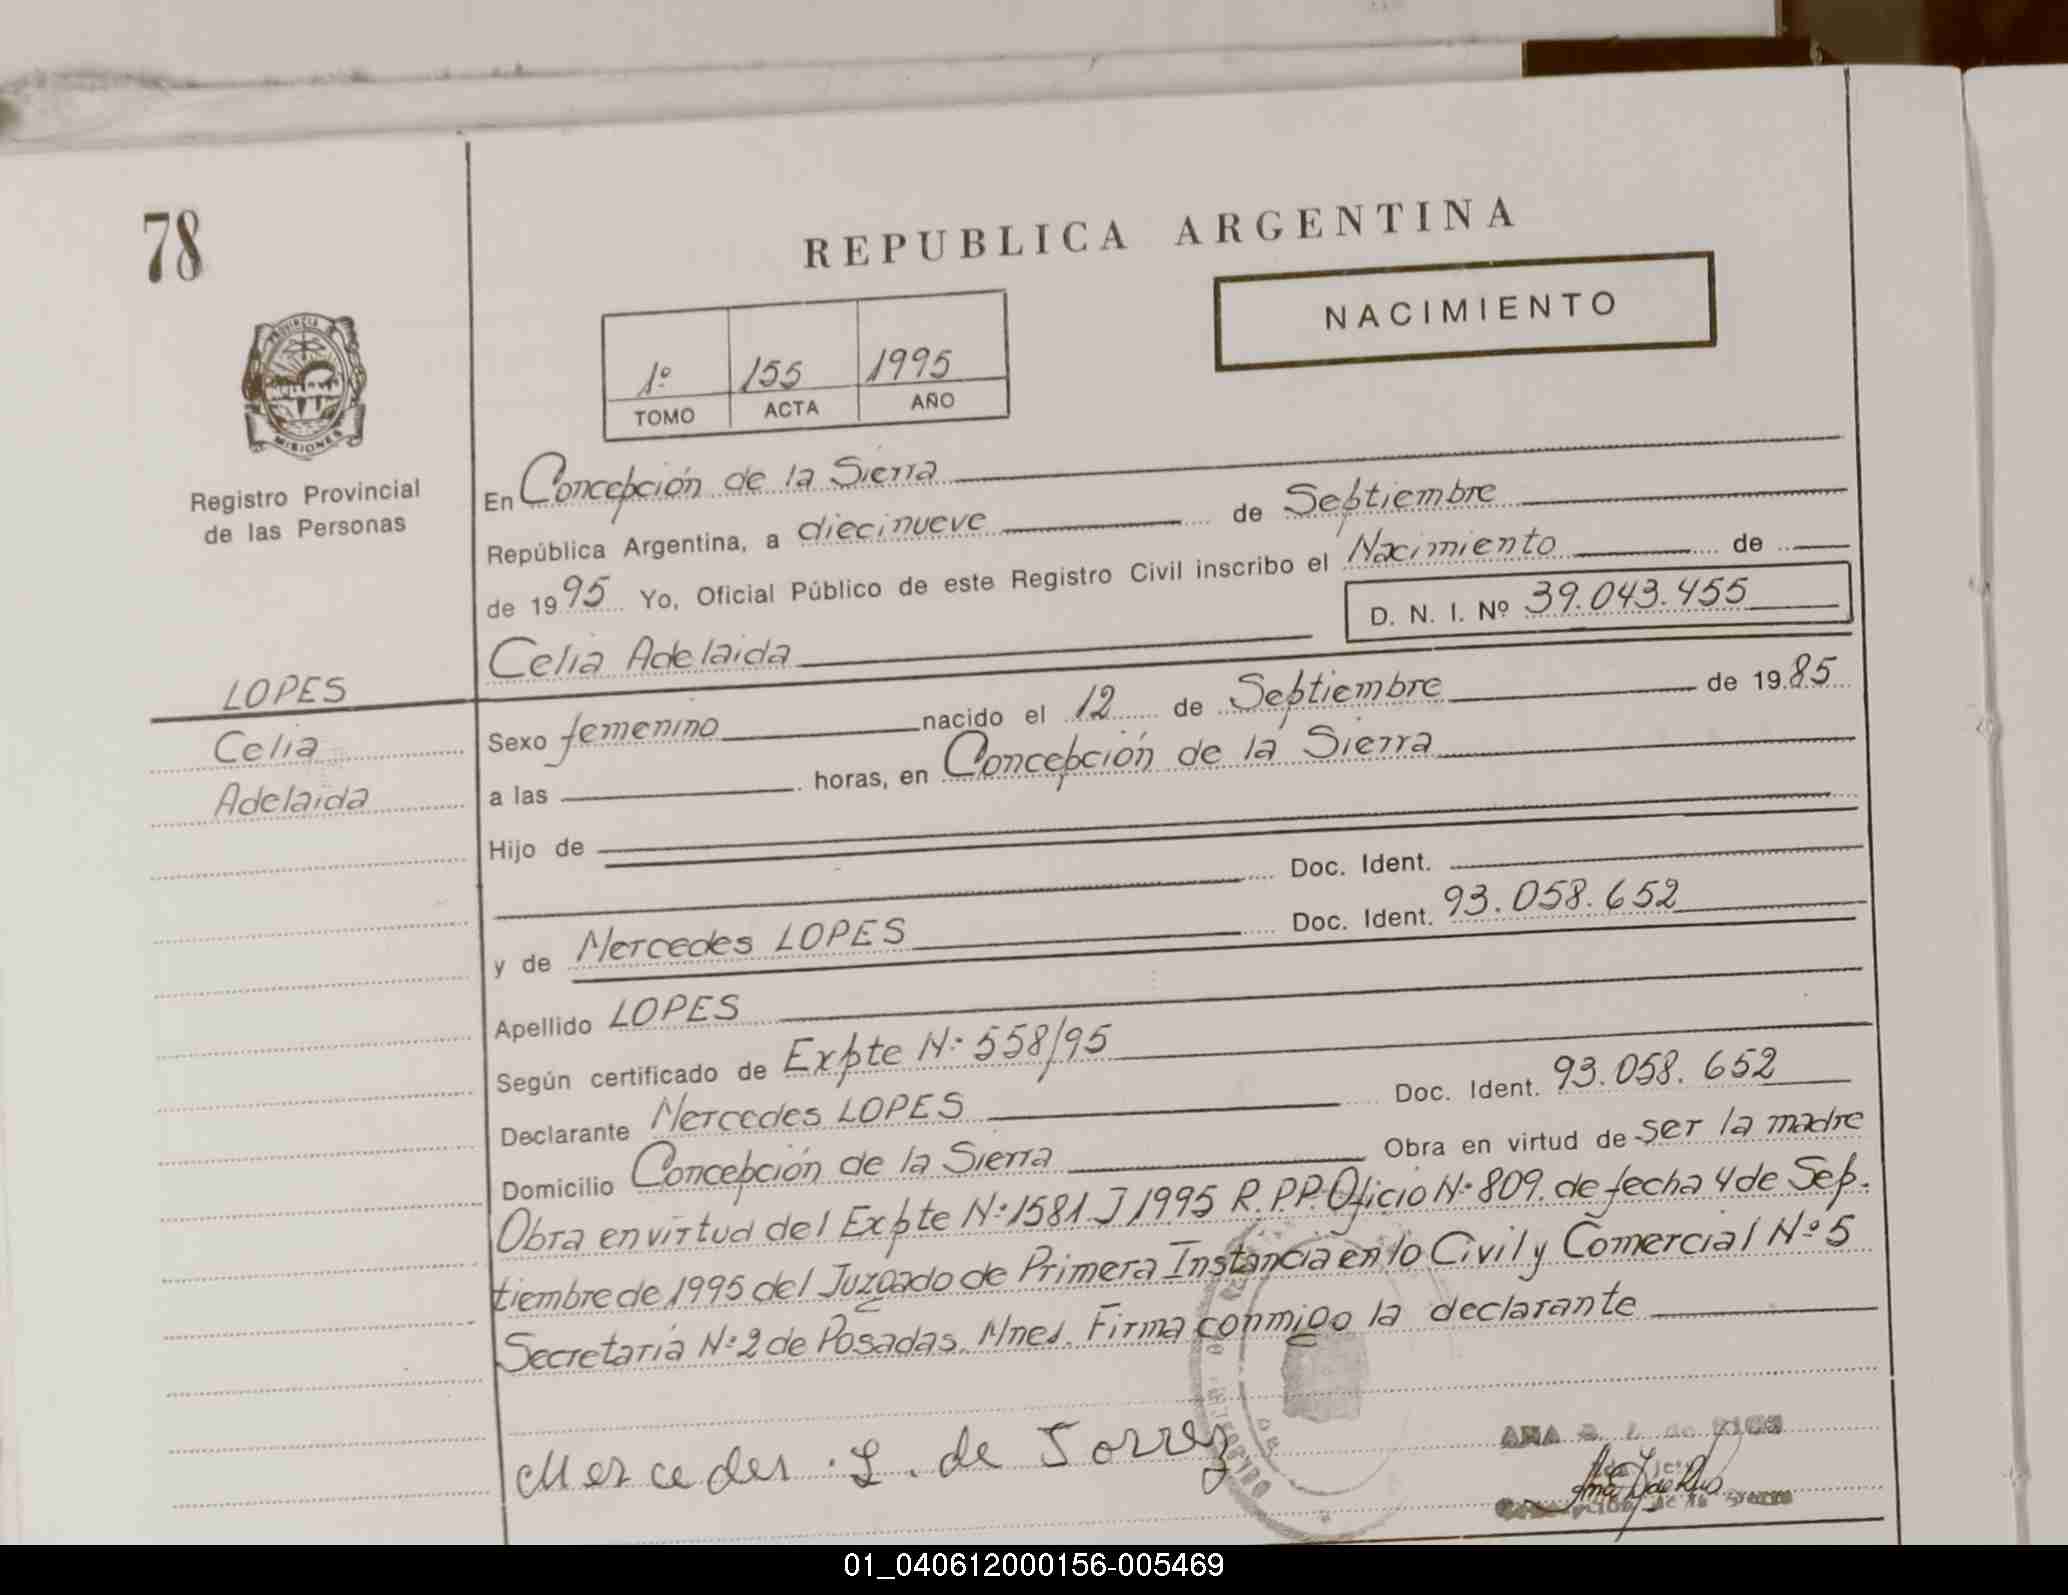 78
REPUBLICA ARGENTINA
NACIMIENTO
1º 155 1995
TOMO ACTA AÑO
PROVINCIA
MISIONES
Registro Provincial
de las Personas
En Concepción de la Sierra
República Argentina, a diecinueve de Septiembre
de 1995 Yo, Oficial Público de este Registro Civil inscribo el Nacimiento de
D. N. I. Nº 39.043.455
Celia Adelaida
LOPES
Celia
Adelaida
Sexo femenino nacido el 12 de Septiembre de 1985
a las horas, en Concepción de la Sierra
Hijo de
Doc. Ident.
y de Mercedes LOPES Doc. Ident. 93.058.652
Apellido LOPES
Según certificado de Expte Nº 558/95
Declarante Mercedes LOPES Doc. Ident. 93.058.652
Domicilio Concepción de la Sierra Obra en virtud de ser la madre
Obra en virtud del Expte Nº 1581 J 1995 R.P.P. Oficio Nº 809. de fecha 4 de Sep.
tiembre de 1995 del Juzgado de Primera Instancia en lo Civil y Comercial Nº 5
Secretaría Nº 2 de Posadas. Mnes. Firma conmigo la declarante
Mercedes . L . de Torrez
ANA de
de la Sierra
01_040612000156-005469